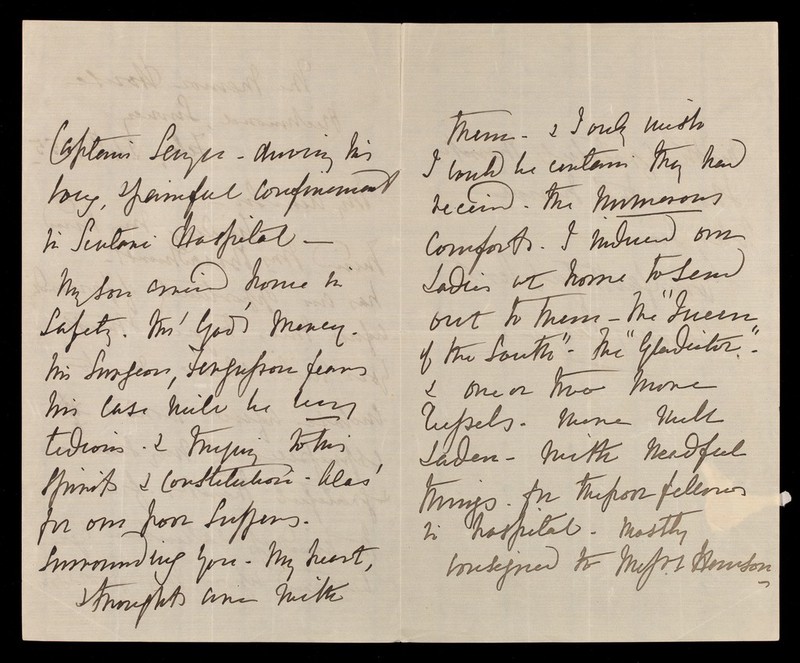 Captain - during his
long, & painful confinement
in Scutari Hospital -
My Son arrived home in
Safety. thro' God's Mercy.
his Surgeon, Fergusson fears
his Case will be very
tedious & trying to his
Spirits & Constitution - Alas'
for our poor Sufferers.
Surrounding you - My heart,
& thoughts are with
them - & I only wish
I could be certain they had
received - the numerous
Comforts. I induced our
Ladies at home to Send
out to them - the "Queen
of the South" - the "Gladiator." -
& one or two more
Vessels - were well
Laden - with needful
things - for the poor fellows
in hospital - mostly
consigned to Messrs